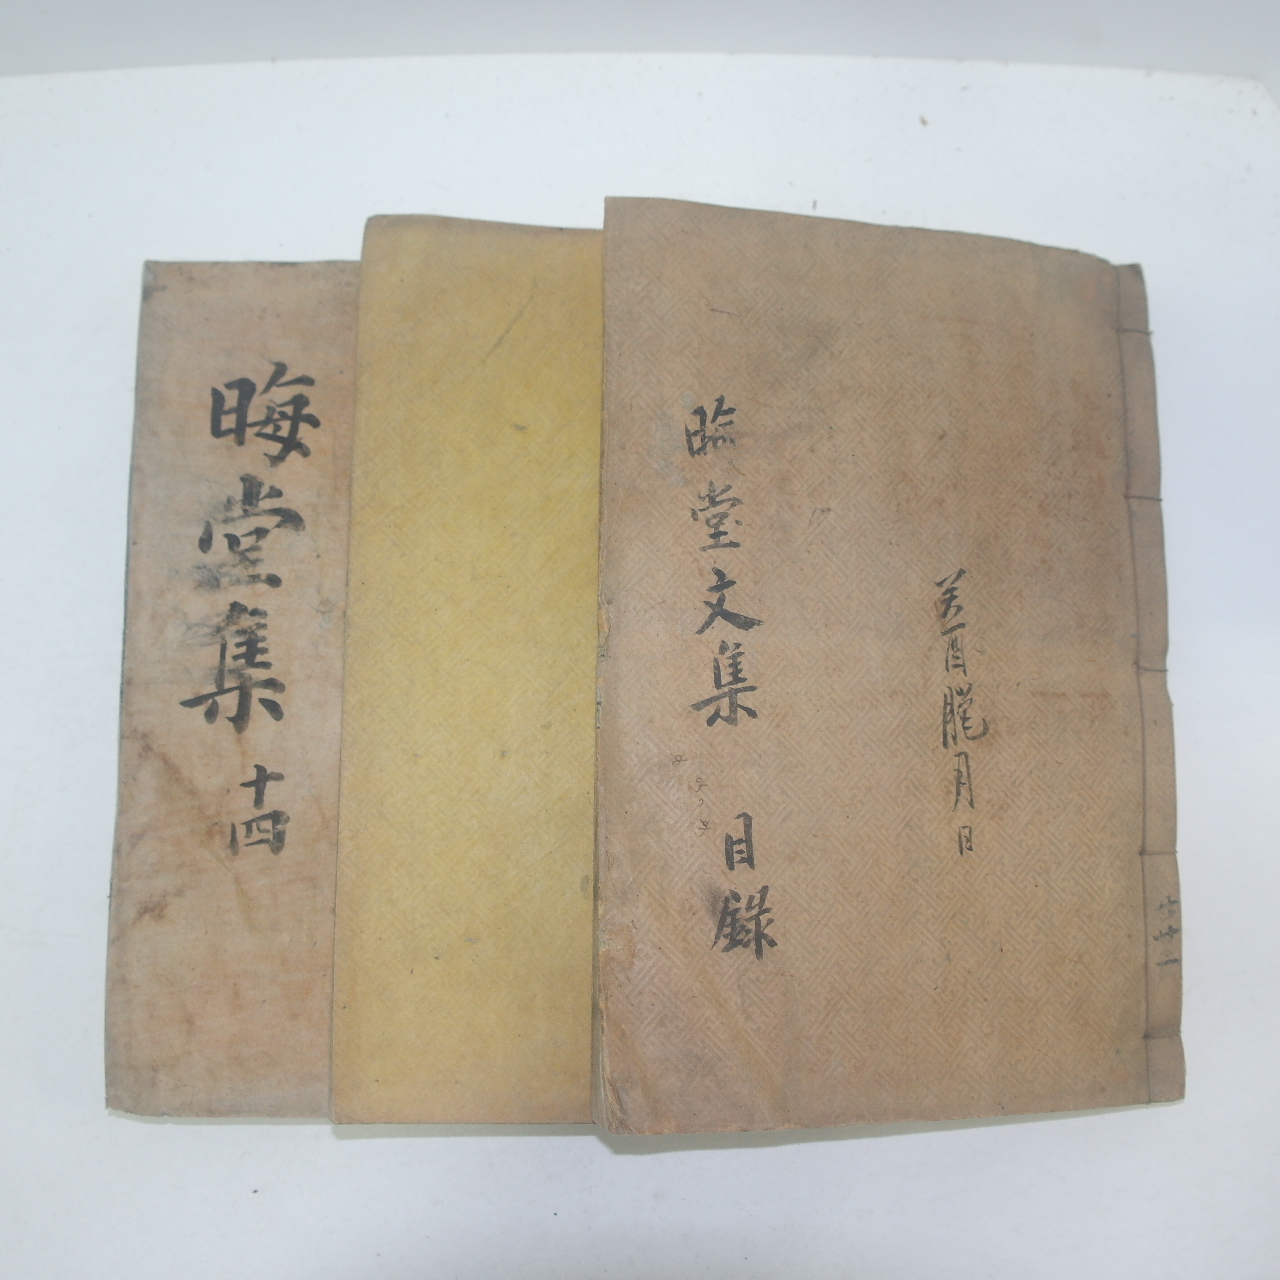 癸酉臘月 日
晦堂文集 目錄
晦堂集 十四